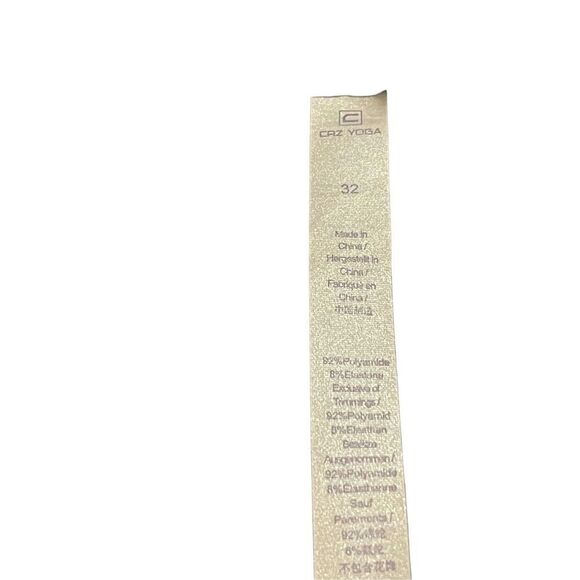 CRZ YOGA
32
Made in
China /
Hergestellt in
China /
Fabriqué en
China /
中国制造
92%Polyamide
8%Elastane
Exclusive of
Trimmings /
92%Polyamid
8%Elasthan
Besätze
Ausgenommen /
92%Polyamide
8%Elasthanne
Sauf
Parements /
92%锦纶
8%氨纶
不包含花边